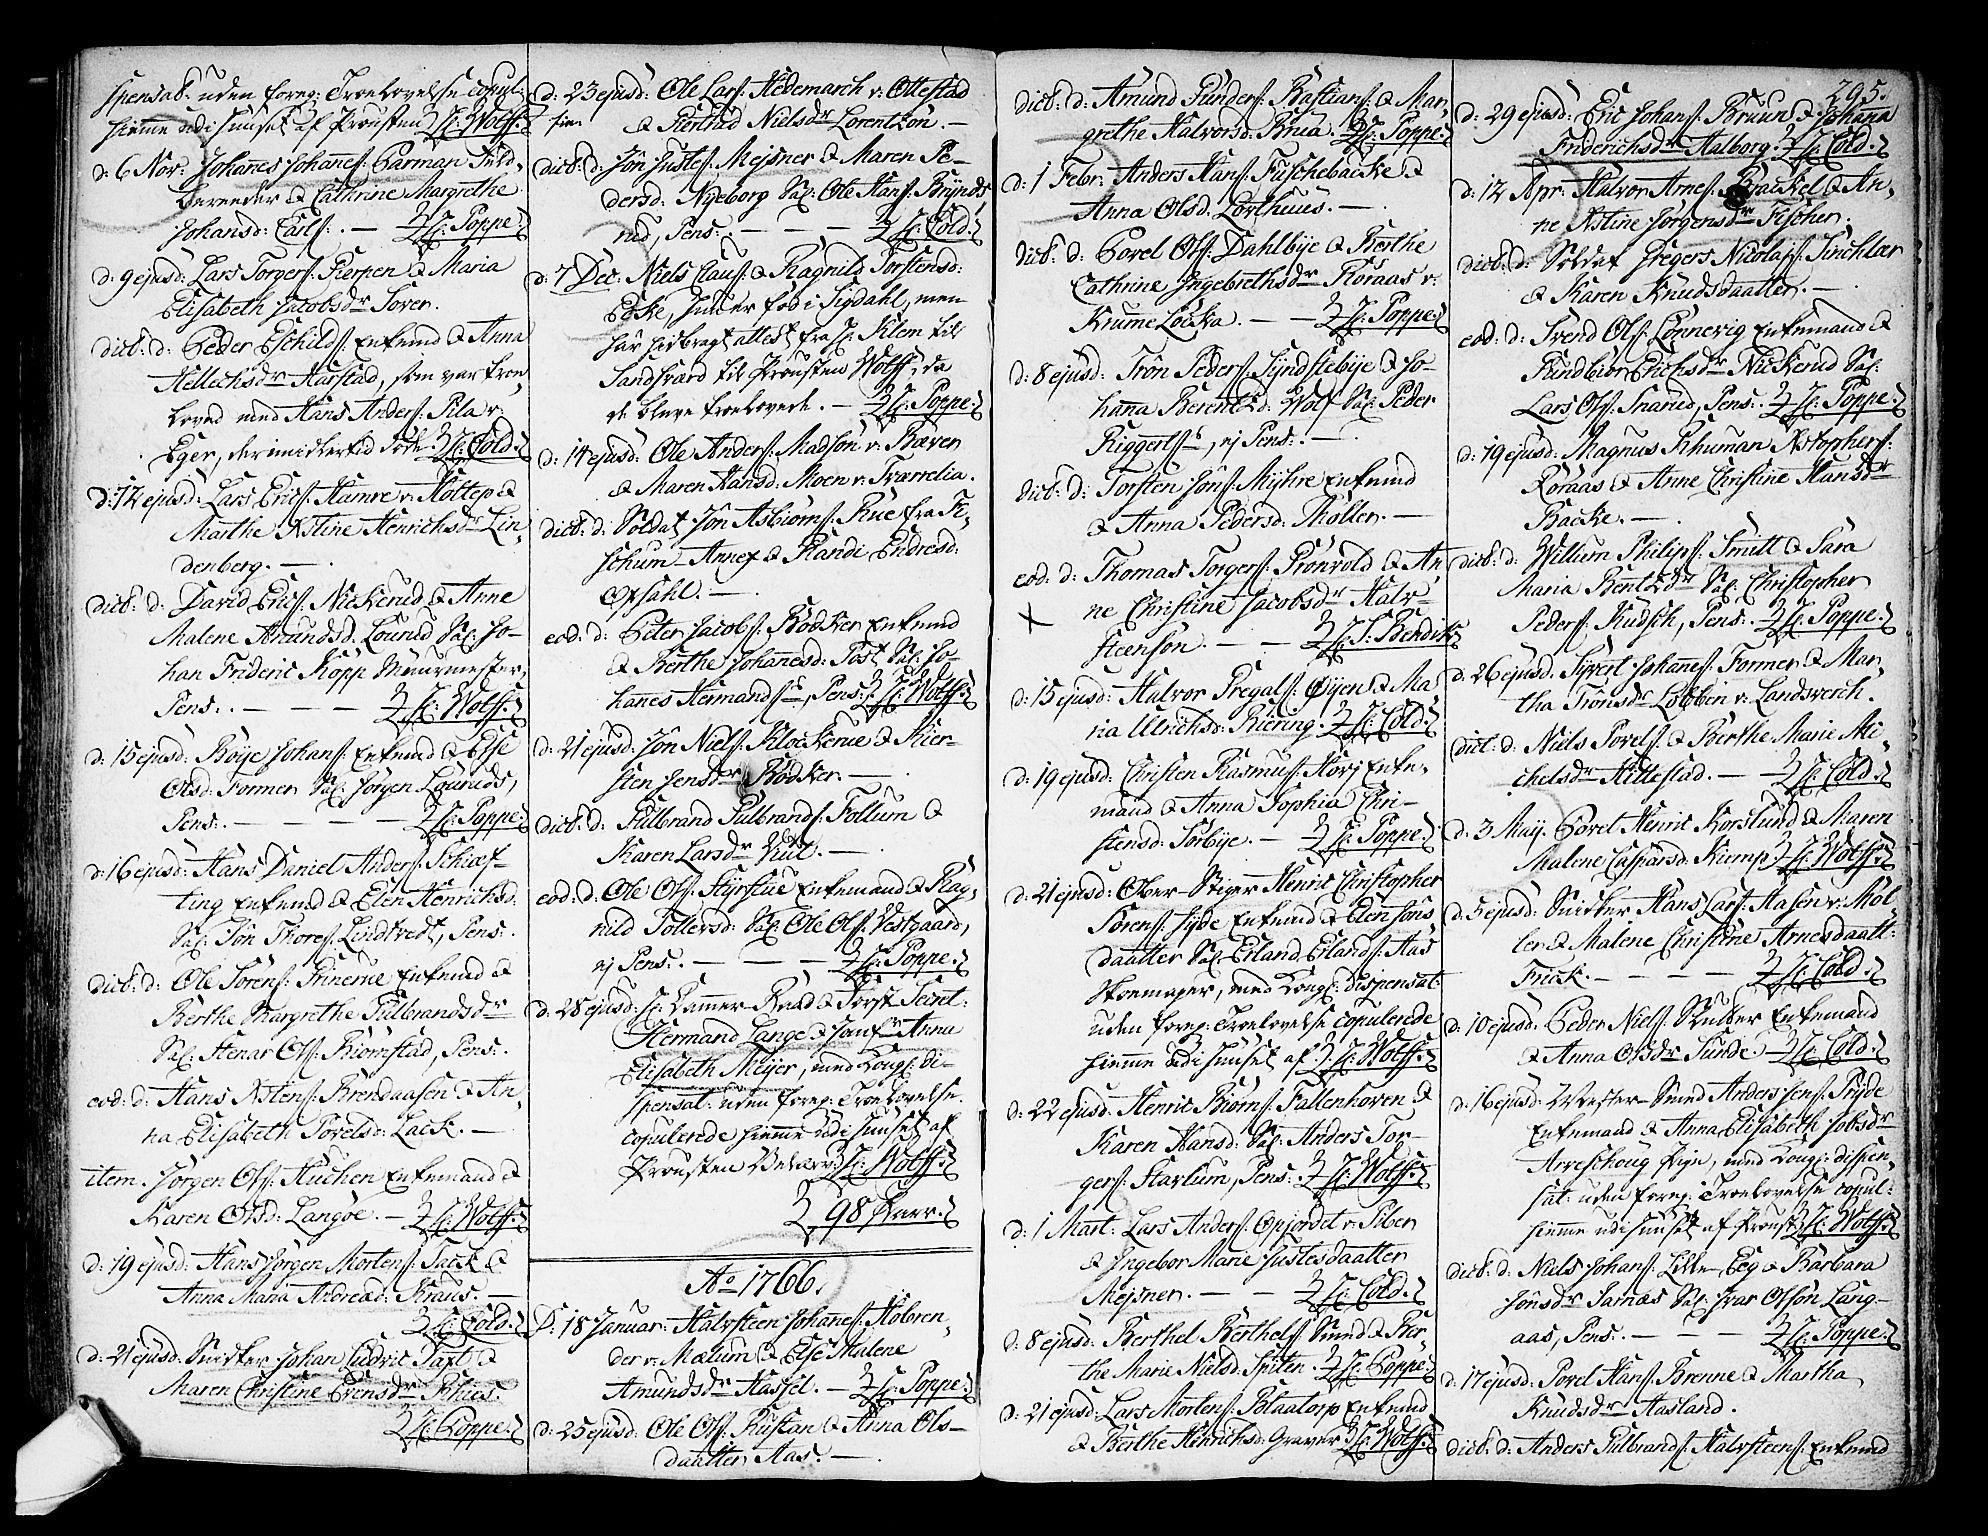 spensat: uden foreg: Troelovelse copul:
hiemme udi huuset af Provsten H: Wolff.
d: 6 Nov: Johanes Johanes: Parman
Cathrine Margrethe
Johansd: Carls:. — H: Poppe.
d: 9 ejusd: Lars Torgers: Pierpen & Maria
Elisabeth Jacobsdr Sover.
dict: d: Peder Eschilds: Enkemd & Anna
Hellechsdr Harstad, som var troe
loved med Hans Anders: Pila v:
Eger, der imidlertid døde. H: Cold.
d: 12 ejusd: Lars Erics: Hamre v: Koltep &
Marthe Kstine Henrichsdr Lin,
denberg. —
dict: d: David Erics: Nickerud & Anne
Malene Amundsd. Lourud Sal: Jo-
han Frideric Kopp Muurmester,
Pens:. — — — H: Wolff.
d: 15 ejusd: Böye Johans: Enkemd & Else
Olsd: Former Sal: Jörgen Louruds,
Pens:. — — — H: Poppe.
d: 16 ejusd: Hans Daniel Anders: Schief-
ting Enkemd & Elen Henrichsd:
Sal: Jön Thores: Lindtvedt, Pens:.
dict: d: Ole Sörens: Trinerue Enkemd &
Berthe Margrethe Fulbrandsdr
Sal: Stenar Ols: Biörnstad, Pens:.
eod: d: Hans Kstens: Brendaasen & An,
na Elisabeth Povelsd: Lack. —
item. Jörgen Ols: Huchen Enkemand &
Karen Olsd: Langöe. — H: Wolff.
d: 19 ejusd: Hans Jörgen Mortens: Sack &
Anna Maria Andreæ: Kraus. —
H: Cold.
d: 21 ejusd: Snidker Johan Ludvic Taxt &
Maren Christine Evensdr Bhues.
H: Poppe.
d: 23 ejusd: Ole Lars: Hedemarch v: Ottestad
& Siertrud Nielsdr Lorentzön. —
dict: d: Jön Justes: Mejsner & Maren Pe-
dersd: Nyeborg Sal: Ole Hans: Brynds,
rud, Pens:. — — — H: Cold.
d: 7 Dec: Niels Claus: & Ragnild Torstensd:
Ecke, hun er föd i Sigdahl, men
har hidbragt attest fra H: Klem til
Sandsværd til Provsten Wolff, da
de bleve troelovede. — H: Poppe.
d: 14 ejusd: Ole Anders: Madsön v: Bæven
& Maren Hansd: Moen v: Tværrelia.
dict: d: Soldat Jön Asbiörns: Rue fra F:
schum Annex & Randi Endresd:
Opsahl. —
eod: d: Peter Jacobs: Bödker Enkemd
& Berthe Johanesd: Post Sal: Jo-
hanes Hermands:, Pens: H: Wolff.
d: 21 ejusd: Jön Niels: Klockerue & Kier-
sten Jensdr Bödker. —
dict: d: Fulbrand Fulbrands: Follum &
Karen Larsdr Viul. —
eod: d: Ole Ols: Styrstue Enkemand & Rag,
nild Tollersd: Sal: Ole Ols: Vestgaard,
ej Pens:. — — H: Poppe.
d: 28 ejusd: H: Cammer Raad & Forst Secret:
Hermand Lange & Jomfr: Anna
Elisabeth Meyer, med Kongl: di-
spensat: uden foreg: Troelovelse
copulerede hiemme udi huuset af
Provsten H: Wolff.
98 Parr.
Ao 1766.
D: 18 Januar: Halvsteen Johanes: Holven-
der v: Mælum & Else Malene
Amundsdr Hassel. — H: Poppe.
d: 25 ejusd: Ole Ols: Rustan & Anna Ols-
daatter Aas. —
dict: d: Amund Gunders: Bastians: & Mar,
grethe Halvorsd: Brua. H: Poppe.
d: 1 Febr: Anders Hans: Fuschebacke &
Anna Olsd. Lorthuus. —
dict: d: Povel Ols: Dahlbye & Berthe
Cathrine Ingebrethsdr Röraas v:
Krumme Löcka. — H: Poppe.
d: 8 ejusd: Trön Peders: Syndstebye & Jo-
hanna Berentzd: Wolf Sal: Peder
Riggerts:, ej Pens:. —
dict: d: Torsten Jöns: Myhre Enkemd
& Anna Pedersd: Möller. —
eod: d: Thomas Torgers: Grönvold & An,
ne Christine Jacobsdr Halv-
steensön. — — H: I. Bendix.
d: 15 ejusd: Halvor Gregas: Öyen & Ma,
ria Ulrichsd: Kiering. H: Cold.
d: 19 ejusd: Christen Rasmus: Korj Enke,
mand & Anna Sophia Chri-
stensd: Sorbye. — H: Poppe.
d: 21 ejusd: Ober-Stiger Henric Christopher
Sörens: Hyde Enkemd & Elen Jöns
daatter Sal: Erland Erlands: Aas
Skoemager, med Kongl: dispensat:
uden foreg: Troelovelse copulerede
hiemme udi huuset af H: Wolff.
d: 22 ejusd: Henric Biörns: Fallenhoven &
Karen Hansd: Sal: Anders Tor-
gers: Skarlum, Pens:. H: Wolff.
d: 1 Mart: Lars Anders: Opjordet v: Piber
& Ingebor Marie Justesdaatter
Mejsner. — — H: Cold.
d: 8 ejusd: Berthel Berthels: Smed & Ber-
the Marie Nielsd: Spiten. H: Poppe.
d: 21 ejusd: Lars Mortens: Polaatorp Enkemd
& Berthe Henrichsd: Graver H: Wolff.
295.
d: 29 ejusd: Eric Johans: Bruun & Johana
Friderichsdr Aalborg. H: Cold.
d: 12 Apr: Halvor Arnes: Brackel & An,
ne Kstine Jörgensdr Fischer.
dict: d: Soldat Gregers Nicolais: Sirichlær
& Karen Knudsdaatter. —
eod: d: Svend Ols: Lönnevig Enkemand &
Gundbiör Erichsdr Nickerud Sal:
Lars Ols: Snarud, Pens:. H: Poppe.
d: 19 ejusd: Magnus Schuman Kstophers:
Röraas & Anne Christine Hansdr
Backe. —
dict: d: Willum Philips: Smitt & Sara
Maria Bentzdr Sal: Christopher
Peders: Kudsch, Pens:. H: Poppe.
d: 26 ejusd: Syvert Johanes: Former & Mar,
tha Trönsdr Löbben v: Landsverch.
dict: d: Niels Povels: & Berthe Marie Mi-
chelsdr Hittestad. — H: Cold.
d: 3 May. Povel Henric Korslund & Maren
Malene Caspersd: Kiemp. H: Wolff.
d: 5 ejusd: Snidker Hans Lars: Aasen v: Möl-
ler & Malene Christine Arnesdaatt:
Frisk. — — — H: Cold.
d: 10 ejusd: Peder Niels: Skutter Enkemand
& Anna Olsdr Sunde. — H: Cold.
d: 16 ejusd: Mester-Smed Anders Jens: Pryde
Enkemand & Anna Elisabeth Jobsdr
Arveschoug Pige, med Kongl: dispen,
sat: uden foreg: Troelovelse copul:
hiemme udi huuset af Provst H: Wolff.
dict: d: Niels Johans: Lille Eeg & Barbara
Jönsdr Sarnæs Sal: Ivar Olsön Lang-
aas, Pens:. — — — H: Poppe.
d: 17 ejusd: Povel Hans: Brenne & Martha
Knudsdr Aasland.
dict: d: Anders Gulbrands: Halvsteens: Enkemd